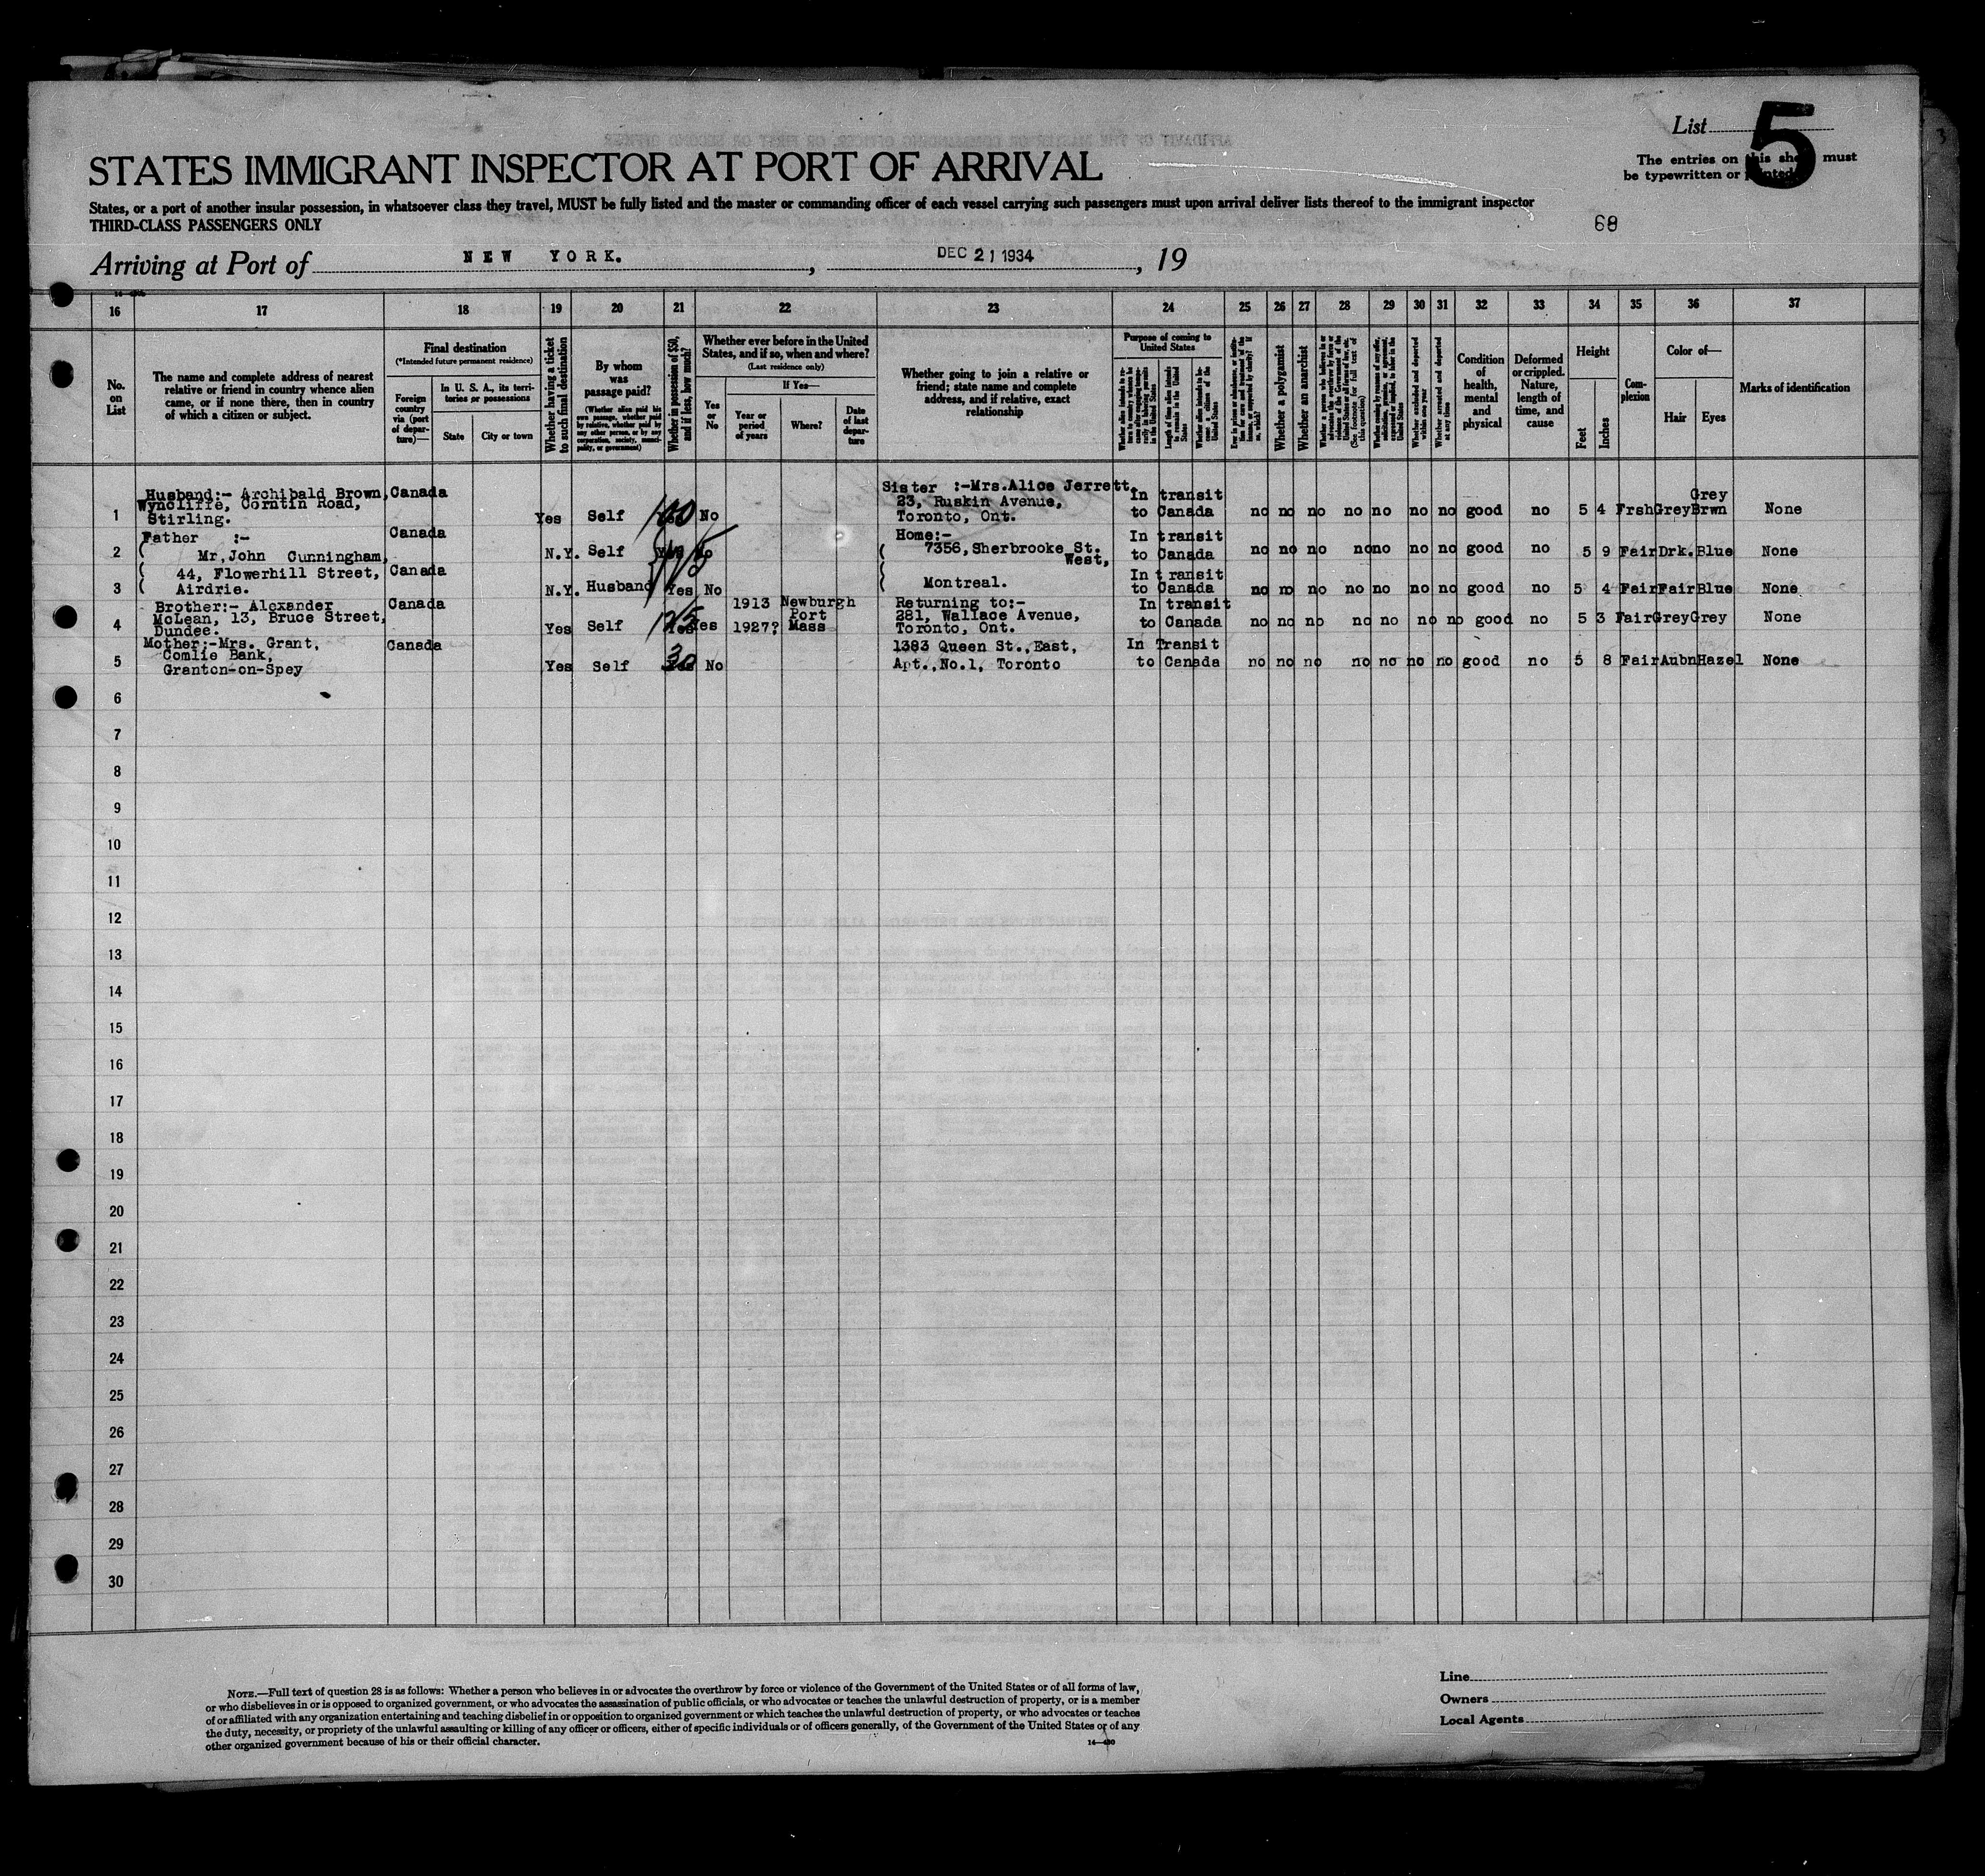 List 5
STATES IMMIGRANT INSPECTOR AT PORT OF ARRIVAL
The entries on this sheet must
be typewritten or printed
States, or a port of another insular possession, in whatsoever class they travel, MUST be fully listed and the master or commanding officer of each vessel carrying such passengers must upon arrival deliver lists thereof to the immigrant inspector
THIRD-CLASS PASSENGERS ONLY
68
Arriving at Port of NEW YORK. , DEC 21 1934 , 19
16 17 18 19 20 21 22 23 24 25 26 27 28 29 30 31 32 33 34 35 36 37
No. on List
The name and complete address of nearest relative or friend in country whence alien came, or if none there, then in country of which a citizen or subject.
Final destination
(*Intended future permanent residence)
Foreign country via (port of departure)—
In U. S. A., its territories or possessions
State
City or town
Whether having a ticket to such final destination
By whom was passage paid?
(Whether alien paid his own passage, whether paid by relative, whether paid by any other person, or by any corporation, society, municipality, or government)
Whether in possession of $50, and if less, how much?
Whether ever before in the United States, and if so, when and where?
(Last residence only)
Yes or No
If Yes—
Year or period of years
Where?
Date of last departure
Whether going to join a relative or friend; state name and complete address, and if relative, exact relationship
Purpose of coming to United States
Whether a polygamist
Whether an anarchist
(See footnote for full text of this question)
Whether arrested and deported at any time
Condition of health, mental and physical
Deformed or crippled. Nature, length of time, and cause
Height
Feet
Inches
Complexion
Color of—
Hair
Eyes
Marks of identification
1 Husband:- Archibald Brown, Canada Yes Self 100 No Sister :-Mrs.Alice Jerrett, In transit no no no no no no no good no 5 4 Frsh Grey Grey None
Wyncliffe, Corntin Road, 23, Ruskin Avenue, to Canada Brwn
Stirling. Toronto, Ont.
2 Father :- Canada N.Y. Self Yes No Home:- In transit no no no no no no no good no 5 9 Fair Drk. Blue None
( Mr,John Cunningham, ( 7356,Sherbrooke St. to Canada
West,
3 ( 44, Flowerhill Street, Canada N.Y. Husband Yes No ( Montreal. In transit no no no no no no no good no 5 4 Fair Fair Blue None
( Airdrie. ( to Canada
4 Brother:- Alexander Canada Yes Self 125 Yes Yes 1913 Newburgh Returning to:- In transit no no no no no no no good no 5 3 Fair Grey Grey None
McLean, 13, Bruce Street, Port 281, Wallace Avenue, to Canada
Dundee. 1927? Mass Toronto, Ont.
5 Mother:-Mrs. Grant, Canada Yes Self 30 No 1383 Queen St.,East, In Transit no no no no no no no good no 5 8 Fair Aubn Hazel None
Comlie Bank, Apt.,No.1, Toronto to Canada
Granton-on-Spey
6
7
8
9
10
11
12
13
14
15
16
17
18
19
20
21
22
23
24
25
26
27
28
29
30
NOTE.—Full text of question 28 is as follows: Whether a person who believes in or advocates the overthrow by force or violence of the Government of the United States or of all forms of law,
or who disbelieves in or is opposed to organized government, or who advocates the assassination of public officials, or who advocates or teaches the unlawful destruction of property, or is a member
of or affiliated with any organization entertaining and teaching disbelief in or opposition to organized government or which teaches the unlawful destruction of property, or who advocates or teaches
the duty, necessity, or propriety of the unlawful assaulting or killing of any officer or officers, either of specific individuals or of officers generally, of the Government of the United States or of any
other organized government because of his or their official character.
14—430
Line
Owners
Local Agents